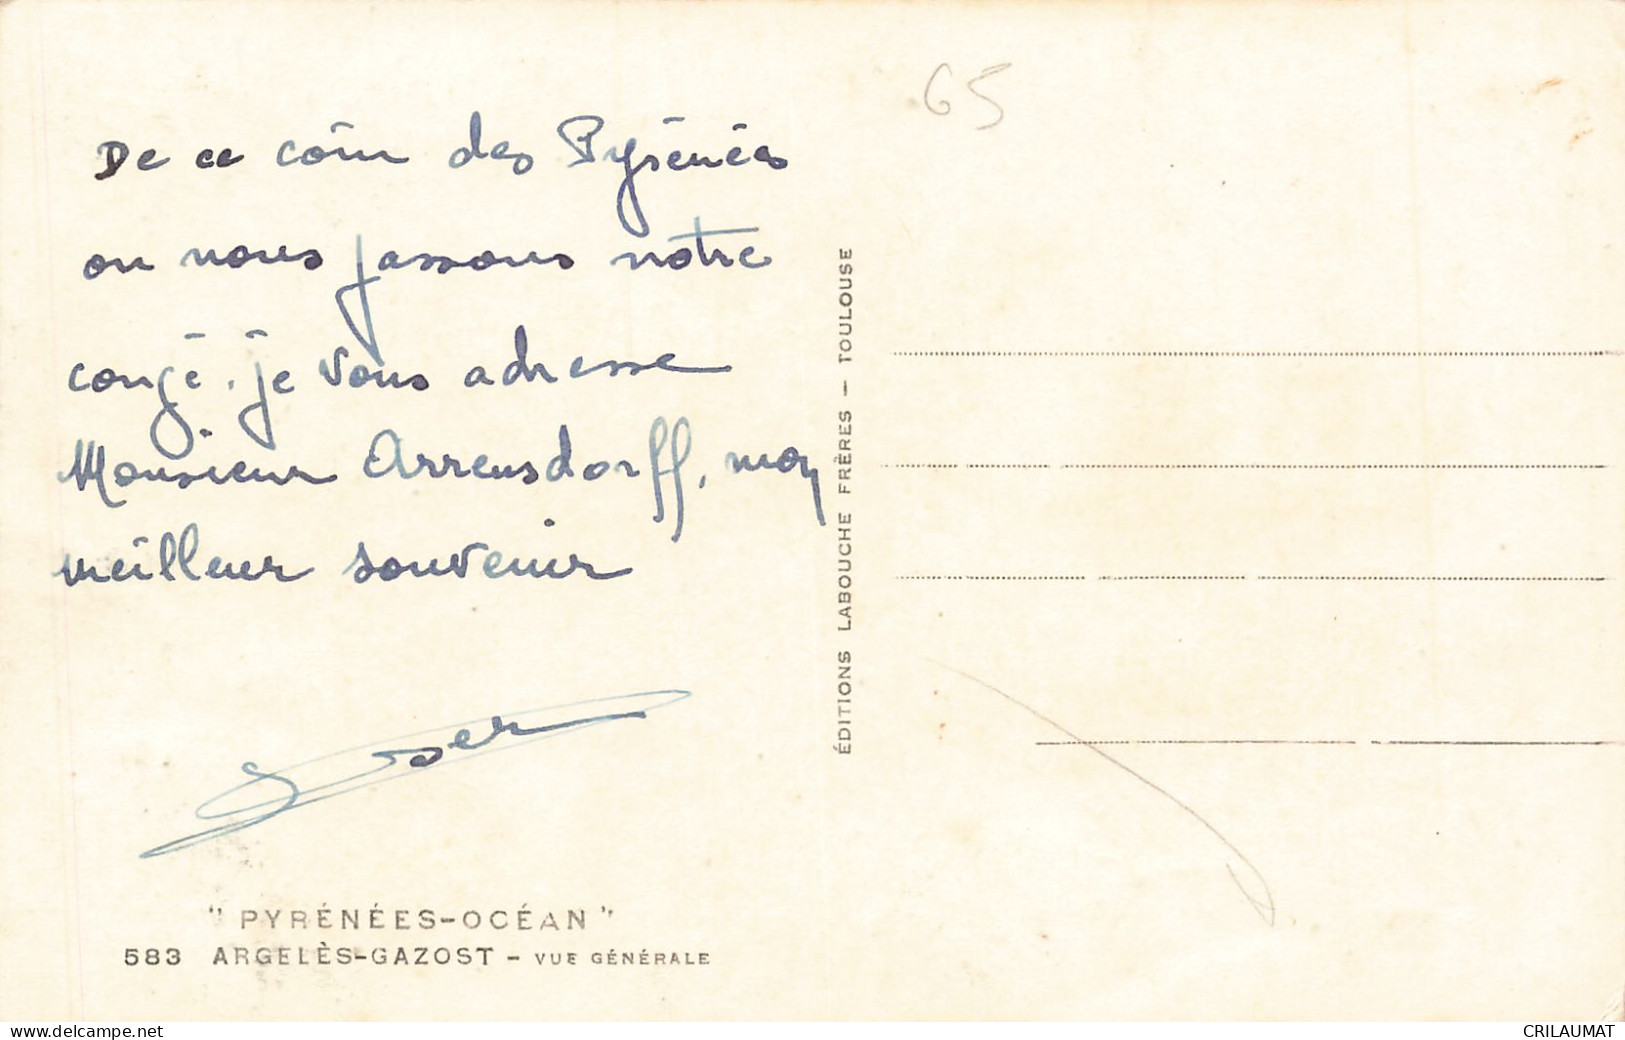 65
De ce coin des Pyrénées
ou nous passons notre
congé. je vous adresse
Monsieur Arrensdorff, mon
meilleur souvenir
ÉDITIONS LABOUCHE FRÈRES — TOULOUSE
" PYRÉNÉES-OCÉAN "
583 ARGELÈS-GAZOST - VUE GÉNÉRALE
www.delcampe.net
CRILAUMAT